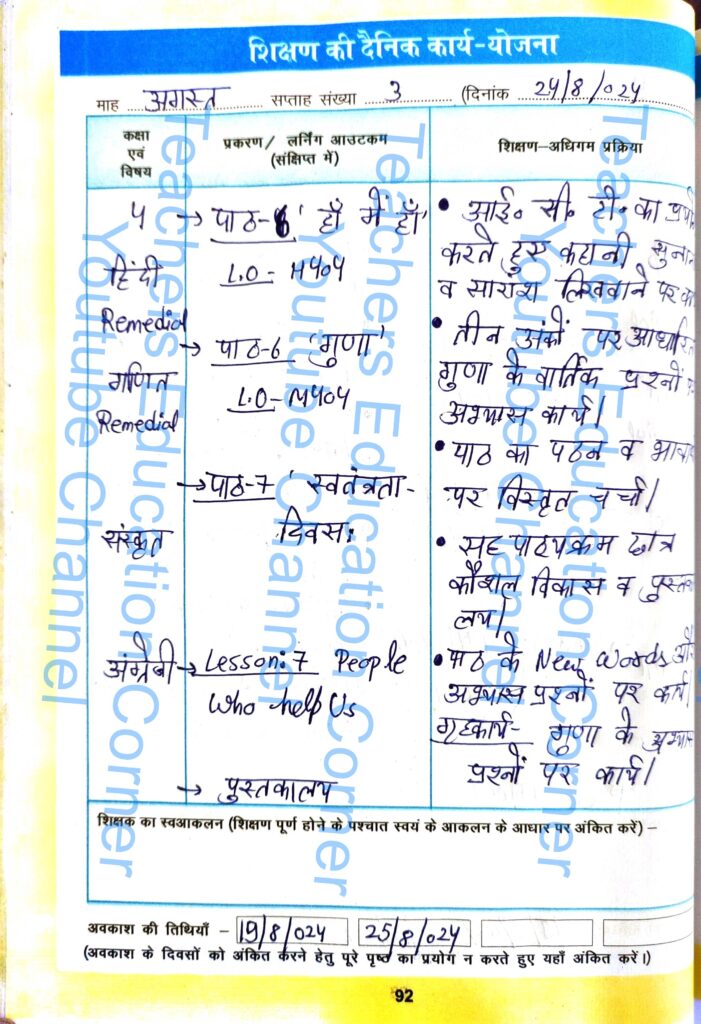 शिक्षण की दैनिक कार्य-योजना
माह अगस्त सप्ताह संख्या 3 (दिनांक 24/8/024
कक्षा एवं विषय
प्रकरण/ लर्निंग आउटकम (संक्षिप्त में)
शिक्षण-अधिगम प्रक्रिया
5 → पाठ-6 'हाँ में हाँ'
हिंदी L.O - H404
Remedial
→ पाठ-6 'गुणा'
गणित L.O-M404
Remedial
→ पाठ-7 ' स्वतंत्रता-
संस्कृत दिवस:
अंग्रेजी → Lesson: 7 People
Who help Us
→ पुस्तकालय
• आई. सी. टी. का
करते हुए कहानी
व सारांश लिखवाने पर
• तीन अंकों पर
गुणा के वार्तिक प्रश्नों
अभ्यास कार्य।
• पाठ का पठन व
पर विस्तृत चर्चा।
• सह पाठ्यक्रम छात्र
कौशल विकास व
लय।
• पाठ के New Words
अभ्यास प्रश्नों पर कार्य।
गृहकार्य- गुणा के
प्रश्नों पर कार्य।
शिक्षक का स्वआकलन (शिक्षण पूर्ण होने के पश्चात स्वयं के आकलन के आधार पर अंकित करें) –
अवकाश की तिथियाँ - 19/8/024 25/8/024
(अवकाश के दिवसों को अंकित करने हेतु पूरे पृष्ठ का प्रयोग न करते हुए यहाँ अंकित करें।)
92
Teachers Education Corner
Youtube Channel
Teachers Education Corner
Youtube Channel
Teachers Education Corner
Youtube Channel